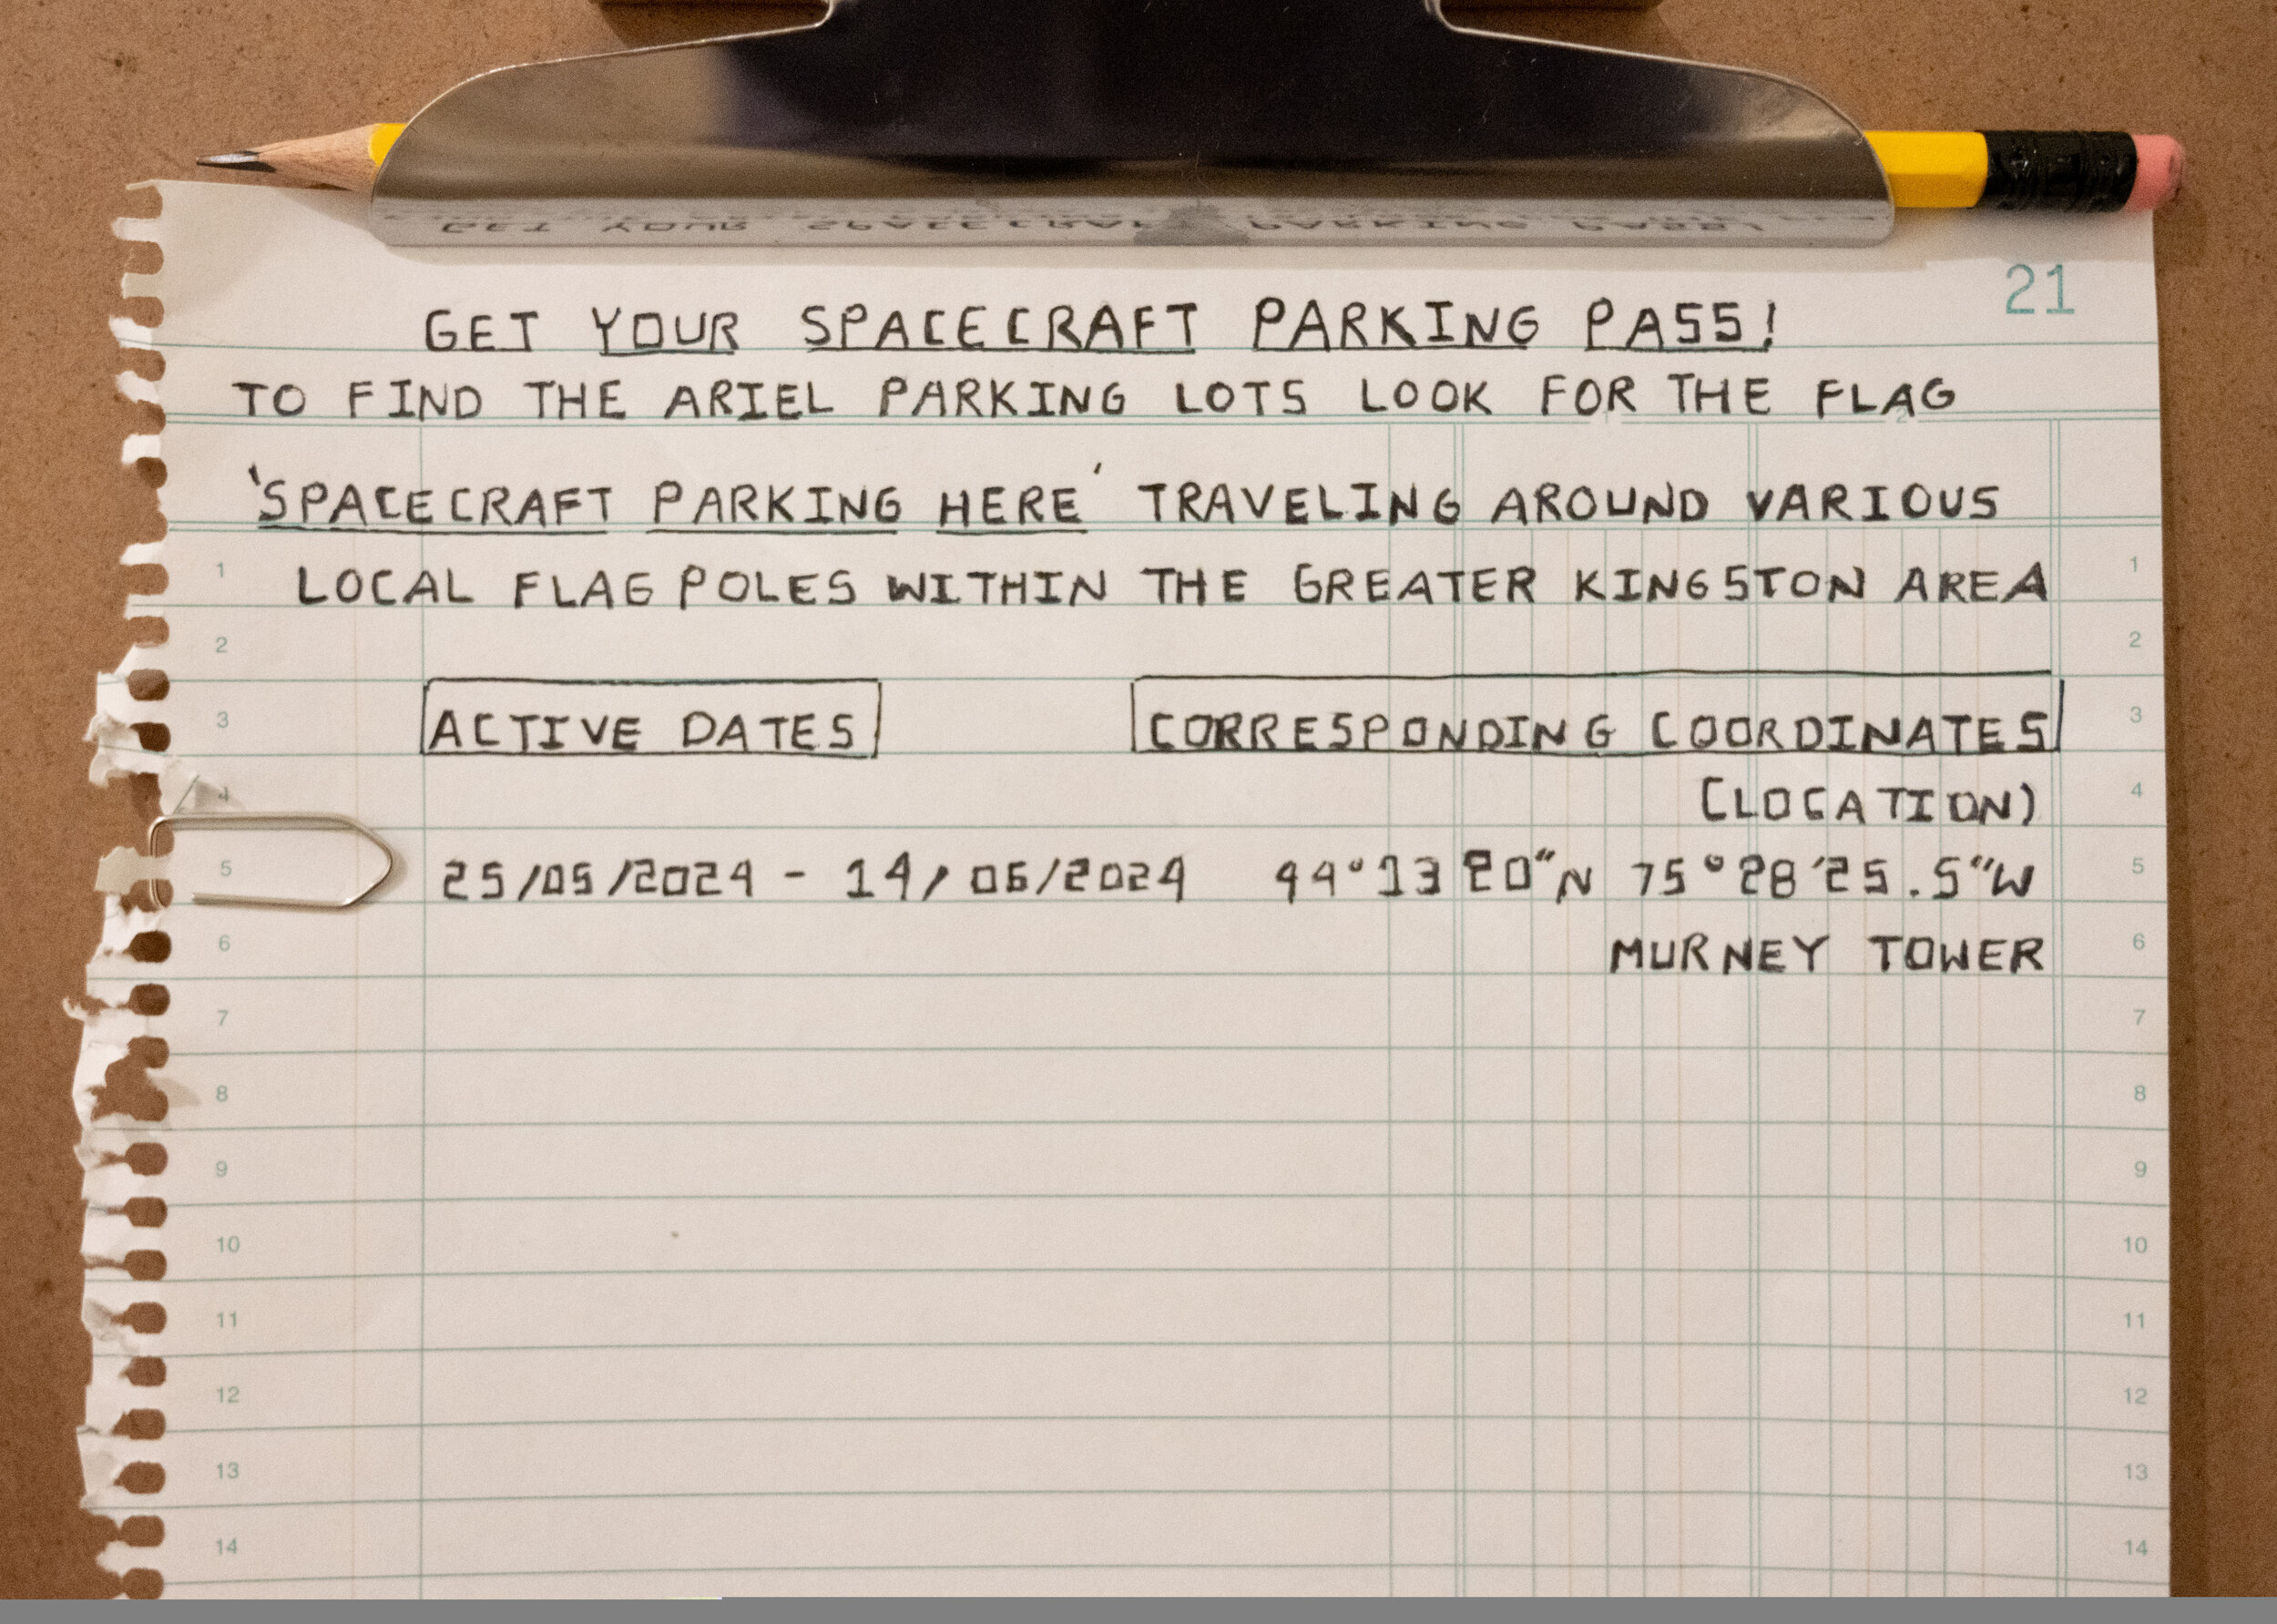 GET YOUR SPACECRAFT PARKING PASS!
21
TO FIND THE ARIEL PARKING LOTS LOOK FOR THE FLAG
'SPACECRAFT PARKING HERE' TRAVELING AROUND VARIOUS
1 LOCAL FLAG POLES WITHIN THE GREATER KINGSTON AREA 1
2 2
3 ACTIVE DATES CORRESPONDING COORDINATES 3
4 (LOCATION) 4
5 25/05/2024 - 14/06/2024 44°13 20"N 75°28'25.5"W 5
6 MURNEY TOWER 6
7 7
8 8
9 9
10 10
11 11
12 12
13 13
14 14